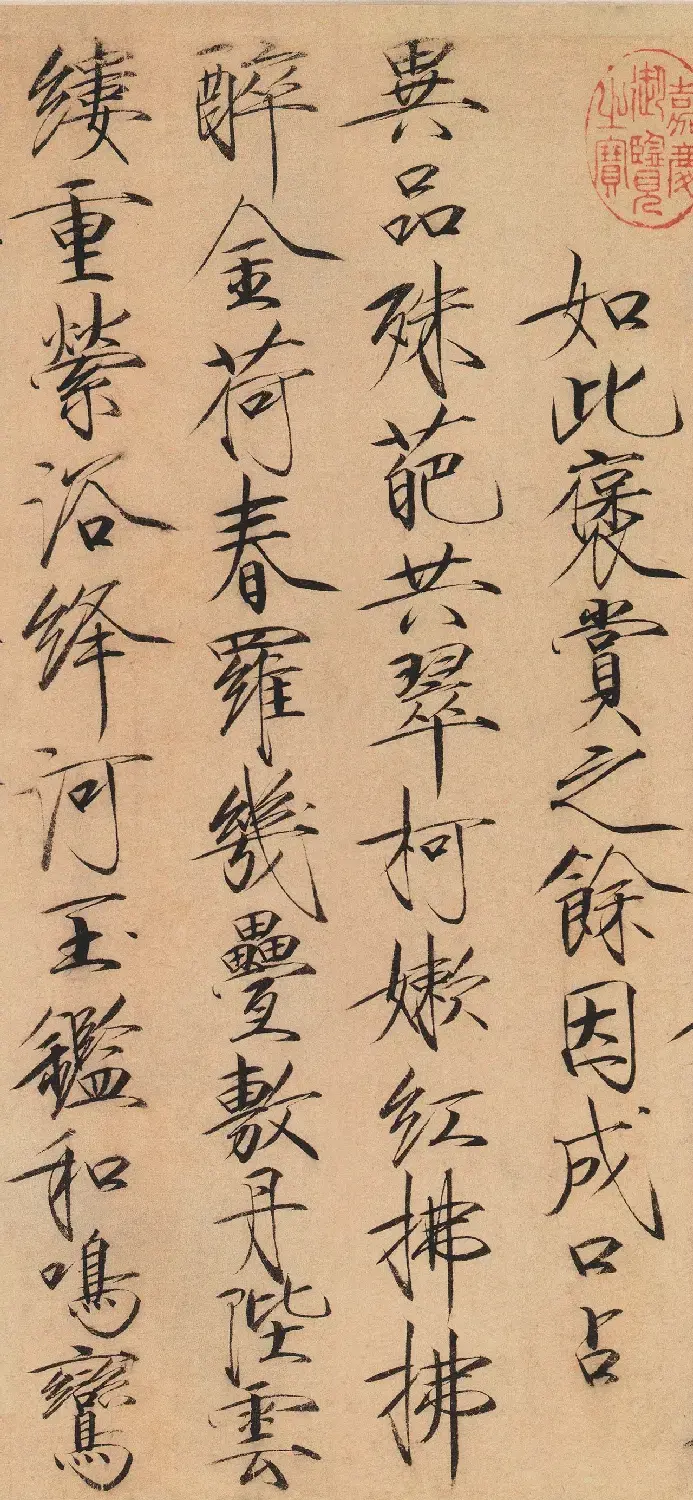 嘉慶
御覽
之寶
如此褒賞之餘因成口占
異品殊葩共翠柯嫩紅拂拂
醉金荷春羅幾疊敷丹陛雲
縷重縈浴絳河玉鑑和鳴鸞